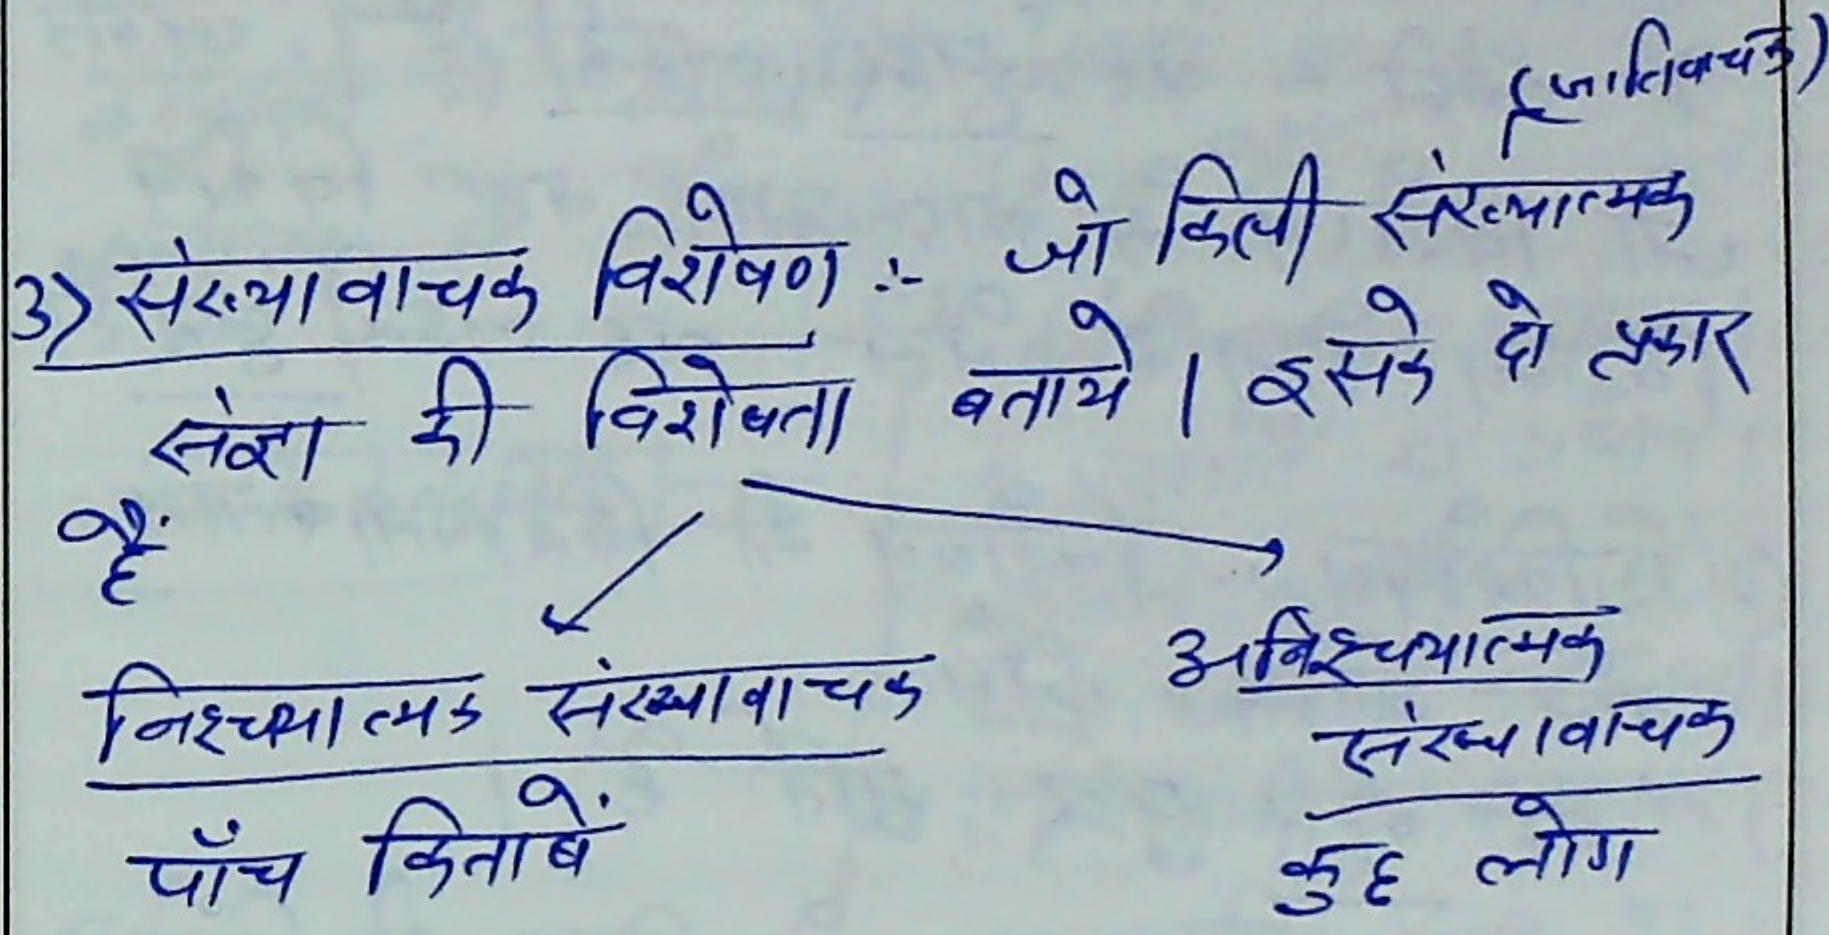 (जातिवाचक)
3) संख्यावाचक विशेषण :- जो किसी संख्यात्मक
संज्ञा की विशेषता बताये । इसके दो प्रकार
हैं
निश्चयात्मक संख्यावाचक
पाँच किताबें
अनिश्चयात्मक
संख्यावाचक
कुछ लोग